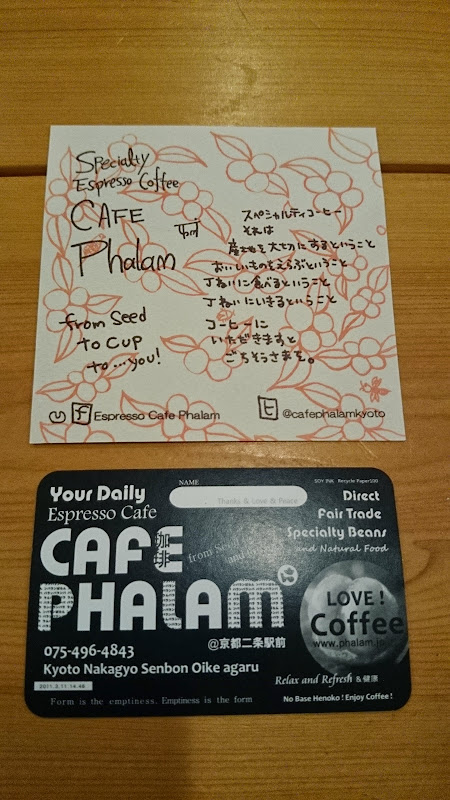 Specialty
Espresso Coffee
CAFE
Phalam
फलं
from Seed
to Cup
to...you!
スペシャルティコーヒー
それは
産地を大切にするということ
おいしいものをえらぶということ
丁ねいに食べるということ
丁ねいにいきるということ
コーヒーに
いただきますと
ごちそうさまを。
Espresso Cafe Phalam
@cafephalamkyoto
NAME
SOY INK Recycle Paper100
Your Daily
Thanks & Love & Peace
Direct
Espresso Cafe
Fair Trade
Specialty Beans
and Natural Food
CAFE
珈琲
from Seed
and
PHALAM
LOVE!
Coffee
www.phalam.jp
@京都二条駅前
075-496-4843
Kyoto Nakagyo Senbon Oike agaru
2011.3.11 14.46
Relax and Refresh & 健康
Form is the emptiness. Emptiness is the form
No Base Henoko! Enjoy Coffee!